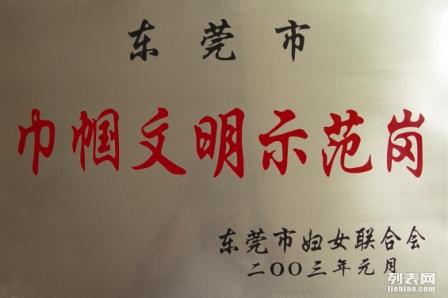 东莞市
巾帼文明示范岗
东莞市妇女联合会
二〇〇三年元月
列表网
liebiao.com